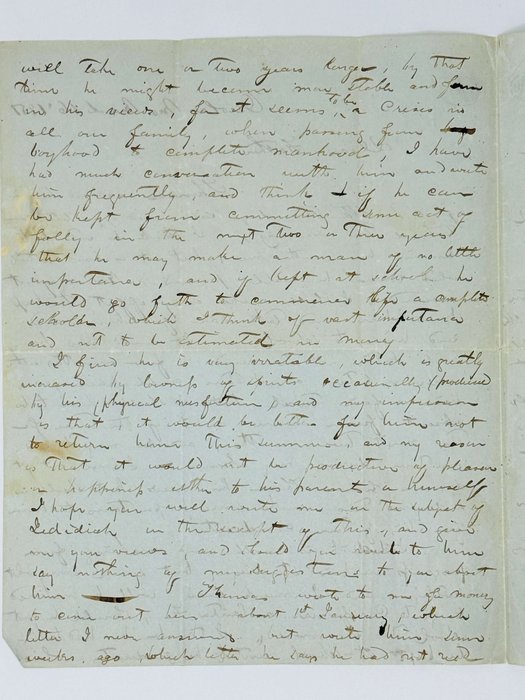 will take one or two years longer, by that
time he might become more stable and firm
in his views, for it seems to be a Crisis in
all our family, when passing from
boyhood to complete manhood, I have
had much conversation with him and write
him frequently, and think if he can
be kept from committing some act of
folly in the next two or three years
that he may make a man of no little
importance, and if kept at school he
would go forth to commence life a complete
scholar, which I think of vast importance
and not to be estimated in money
I find he is very irratable, which is greatly
increased by lowness of spirits occasionally (produced
by his physical misfortune), and my impression
is that it would be better for him not
to return home this summer and my reason
is that it would not be productive of pleasure
or happiness either to his parents or himself
I hope you will write me on the subject of
Jedidiah on the receipt of this, and give
me your views, and should you write to him
say nothing of my suggestions to you about
him Thomas wrote to me for money
to come out here about 1st January, which
letter I never answered, but wrote him some
weeks ago, which letter he says he had not recd